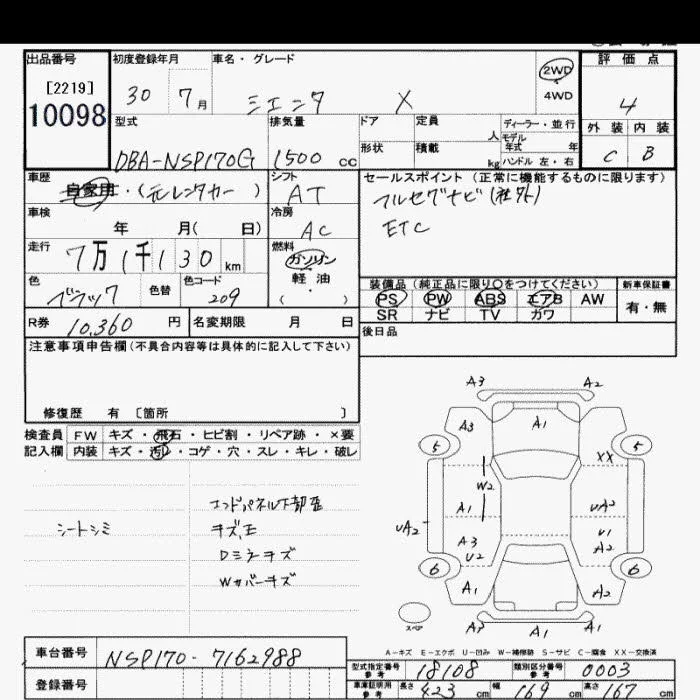 出品番号 初度登録年月 車名・グレード 2WD 評価点
[2219] 30 7月 シエンタ X 4WD 4
10098 型式 排気量 ドア 定員 人 ディーラー・並行 外装 内装
モデル年式 年
DBA-NSP170G 1500 cc 形状 積載 kg ハンドル 左・右 C B
車歴 自家用・(元レンタカー) シフト AT セールスポイント (正常に機能するものに限ります)
フルセグナビ(社外)
車検 年 月( 日) 冷房 AC ETC
走行 7万1千130km 燃料 ガソリン
軽・油
( ・ )
色 ブラック 色替 色コード 209
装備品 (純正品に限り○をつけてください) 新車保証書
PS PW ABS エアB AW 有・無
SR ナビ TV カワ
R券 10,360 円 名変期限 月 日 後日品
注意事項申告欄(不具合内容等は具体的に記入して下さい)
修復歴 有 〔箇所 〕
検査員 FW キズ・飛石・ヒビ割・リペア跡・×要
記入欄 内装 キズ・汚レ・コゲ・穴・スレ・キレ・破レ
シートシミ
エンドパネル下部歪
キズ、王
Dミラーキズ
Wカバーキズ
A3 A2
A3 A1
5 5
XX
W2
A1 UA2
UA2 A3 U1
U2 A2
6 6
A1 A2
スペア
A1 A1 A1
A-キズ E-エクボ U-凹み W-補修跡 S-サビ C-腐食 XX-交換済
車台番号 NSP170-7162988
型式指定番号 参考 18108 類別区分番号 参考 0003
登録番号 車庫証明用 参考 長さ 423 cm 幅 169 cm 高さ 167 cm